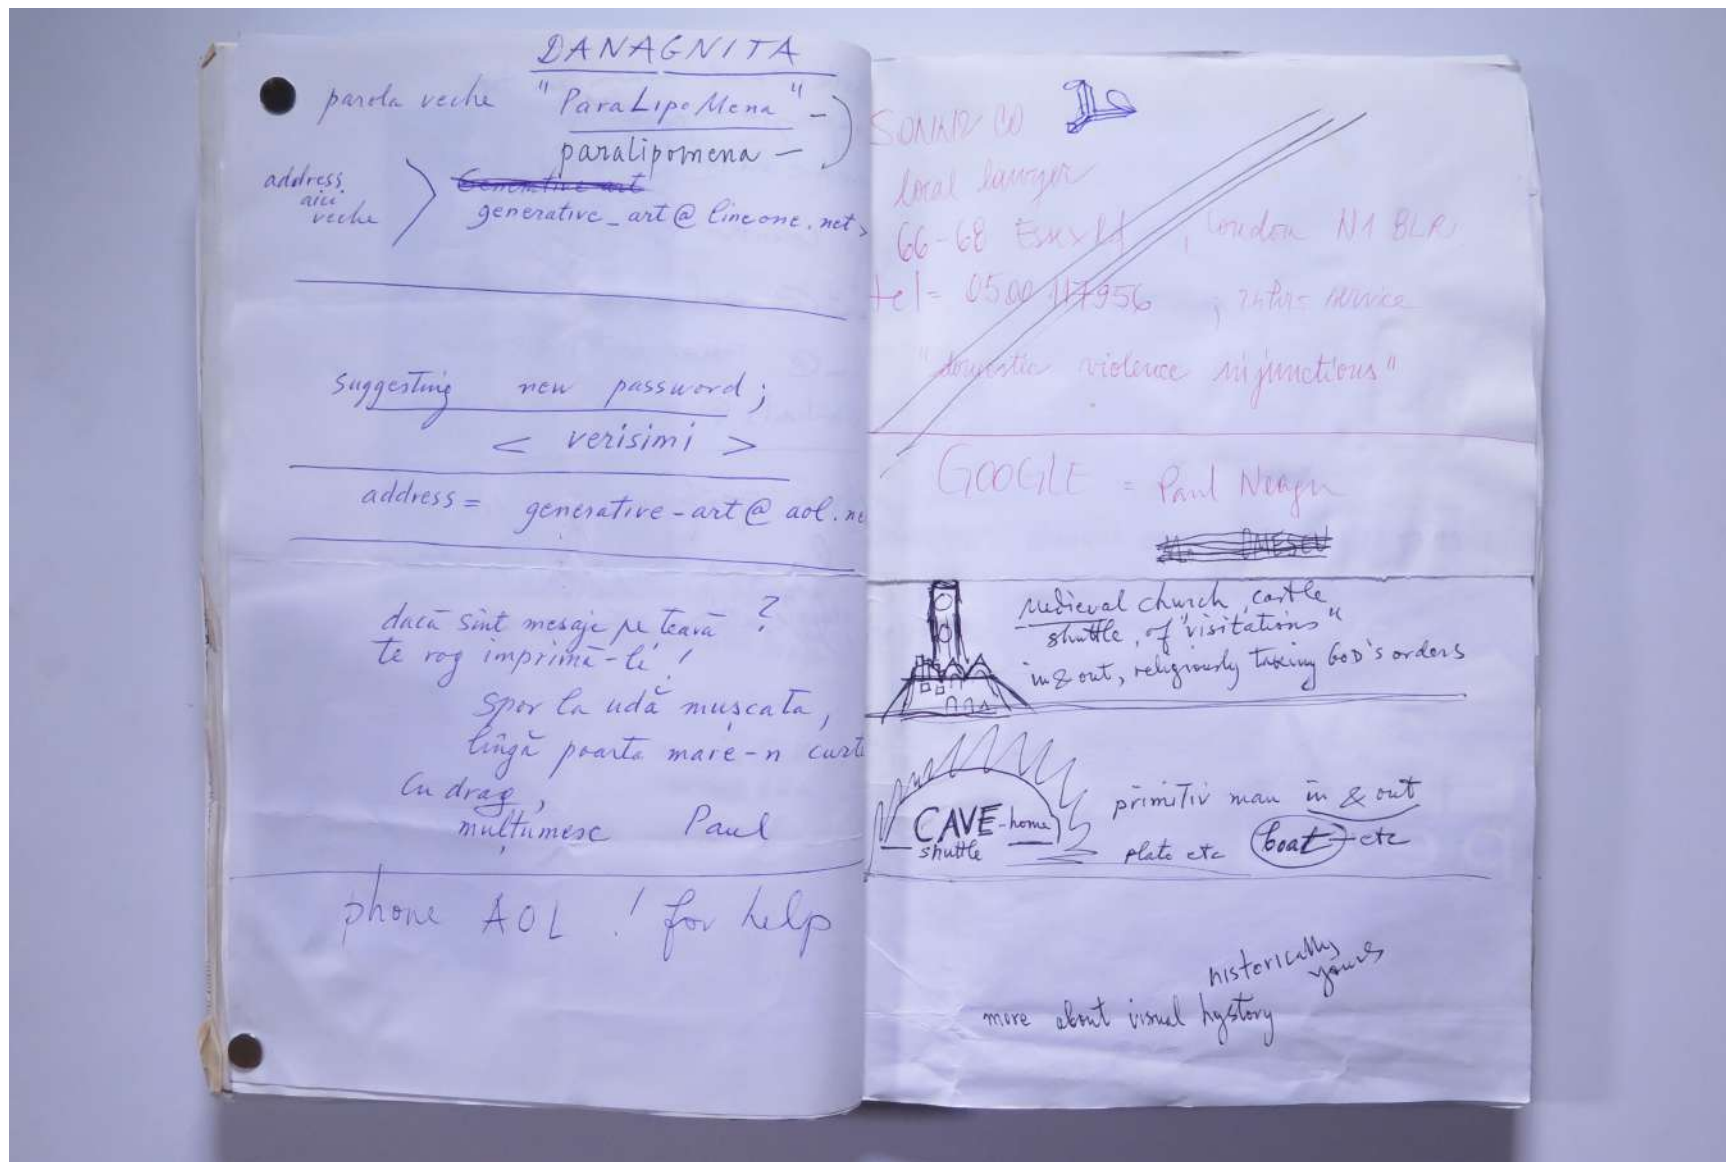 DANAGNITA
parola veche "ParaLipoMena" -
paralipomena -
address
aici
veche
Generative art
generative_art@lineone.net
suggesting new password;
< verisimi >
address = generative-art@aol.ne
dacă sînt mesaje pe teavă ?
te rog imprimă-le !
spor la udă mușcata,
lîngă poarta mare-n curte
Cu drag,
mulțumesc Paul
phone AOL ! for help
CO
local lawyer
66-68 Essex Rd, London N1 8LR
tel = 0500 117956 ; 24hr service
"domestic violence injunctions"
GOOGLE = Paul Neagu
medieval church, castle
shuttle, of "visitations"
in & out, religiously taking GOD's orders
CAVE-home
shuttle
primitiv man in & out
plate etc boat etc
historically
yours
more about visual hystory